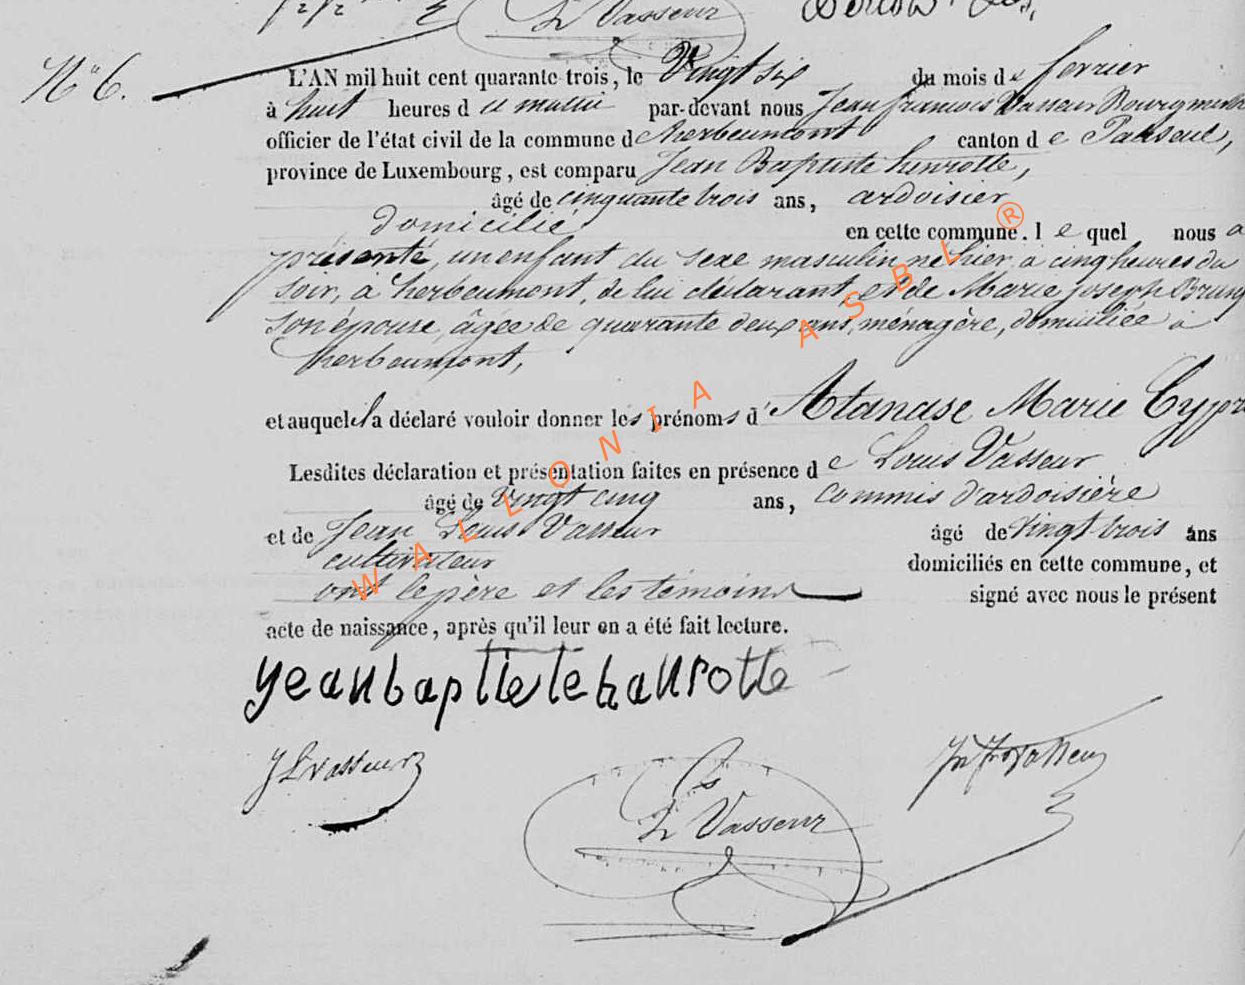 Vasseur
N° 6.
L'AN mil huit cent quarante trois, le Vingt six du mois de fevrier
à huit heures d u matin par-devant nous Jean francois Vasseur Bourgmestre
officier de l'état civil de la commune d herbeumont canton d e Paliseul,
province de Luxembourg, est comparu Jean Baptiste henrotte,
âgé de cinquante trois ans, ardoisier
domicilié en cette commune. l e quel nous a
présenté, un enfant du sexe masculin né hier, à cinq heures du
soir, à herbeumont, de lui déclarant, et de Marie Joseph
son épouse, âgée de quarante deux ans, ménagère, domiciliée à
herbeumont,
et auquel il a déclaré vouloir donner les prénoms d' Atanase Marie Cypr
Lesdites déclaration et présentation faites en présence d e Louis Vasseur
âgé de Vingt cinq ans, commis d'ardoisière
et de Jean Louis Vasseur âgé de Vingt trois ans
cultivateur domiciliés en cette commune, et
ont le père et les témoins signé avec nous le présent
acte de naissance, après qu'il leur en a été fait lecture.
yean baptiste hanrotte
J L Vasseur
Vasseur
WALLONIA ASBL ®